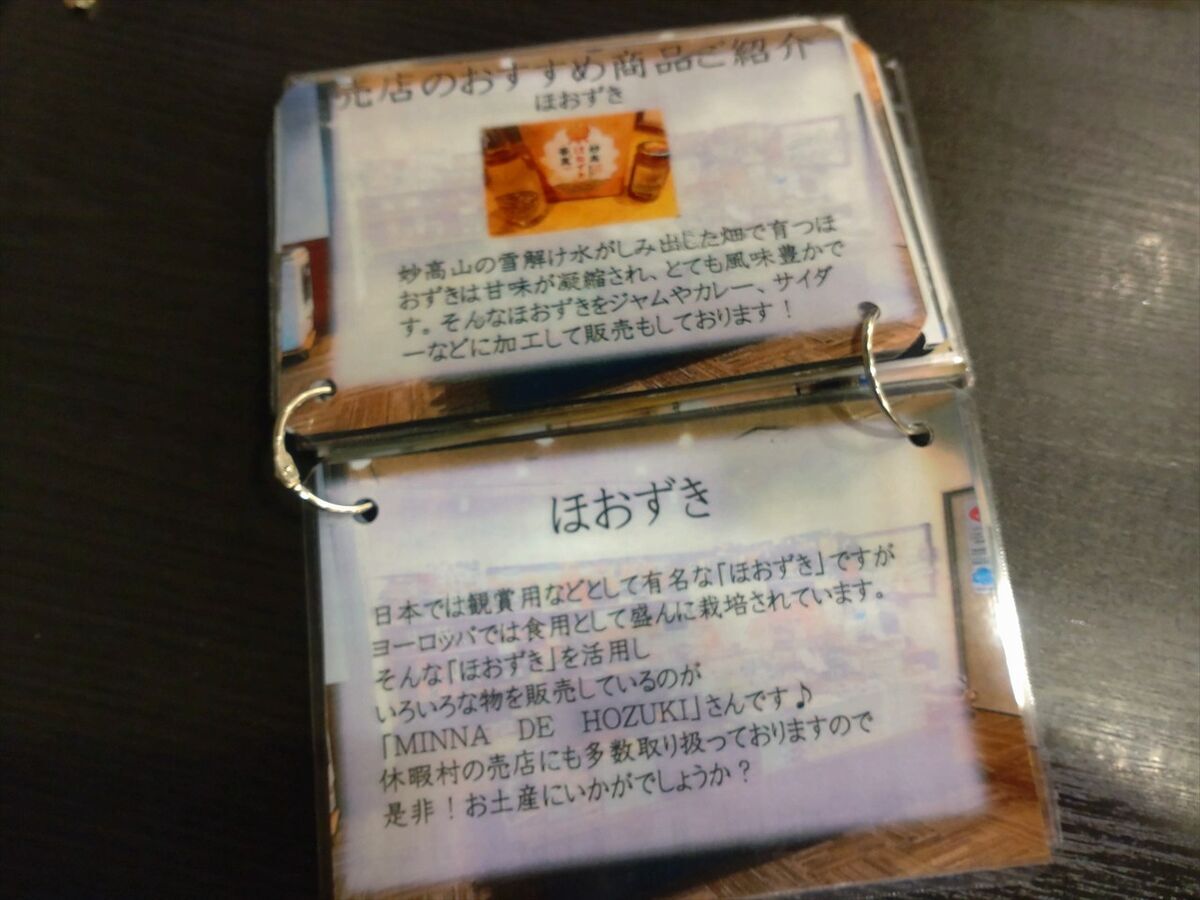 売店のおすすめ商品ご紹介
ほおずき
妙高山の雪解け水がしみ出した畑で育つほ
おずきは甘味が凝縮され、とても風味豊かで
す。そんなほおずきをジャムやカレー、サイダ
ーなどに加工して販売もしております！
ほおずき
日本では観賞用などとして有名な「ほおずき」ですが
ヨーロッパでは食用として盛んに栽培されています。
そんな「ほおずき」を活用し
いろいろな物を販売しているのが
「MINNA DE HOZUKI」さんです♪
休暇村の売店にも多数取り扱っておりますので
是非！お土産にいかがでしょうか？